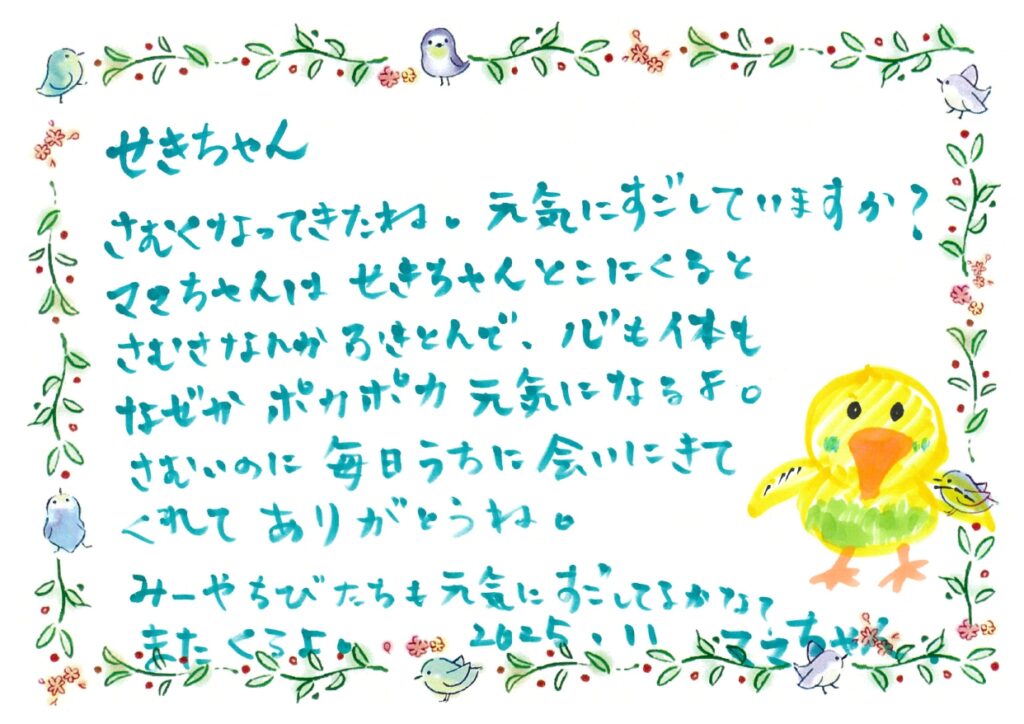 せきちゃん
さむくなってきたね。元気にすごしていますか?
ママちゃんは せきちゃんとこにくると
さむさなんかふきとんで、心も体も
なぜか ポカポカ 元気になるよ。
さむいのに 毎日うちに会いにきて
くれて ありがとうね。
みーやちびたちも元気にすごしてるかな?
また くるよ。 2025.11 ママちゃん